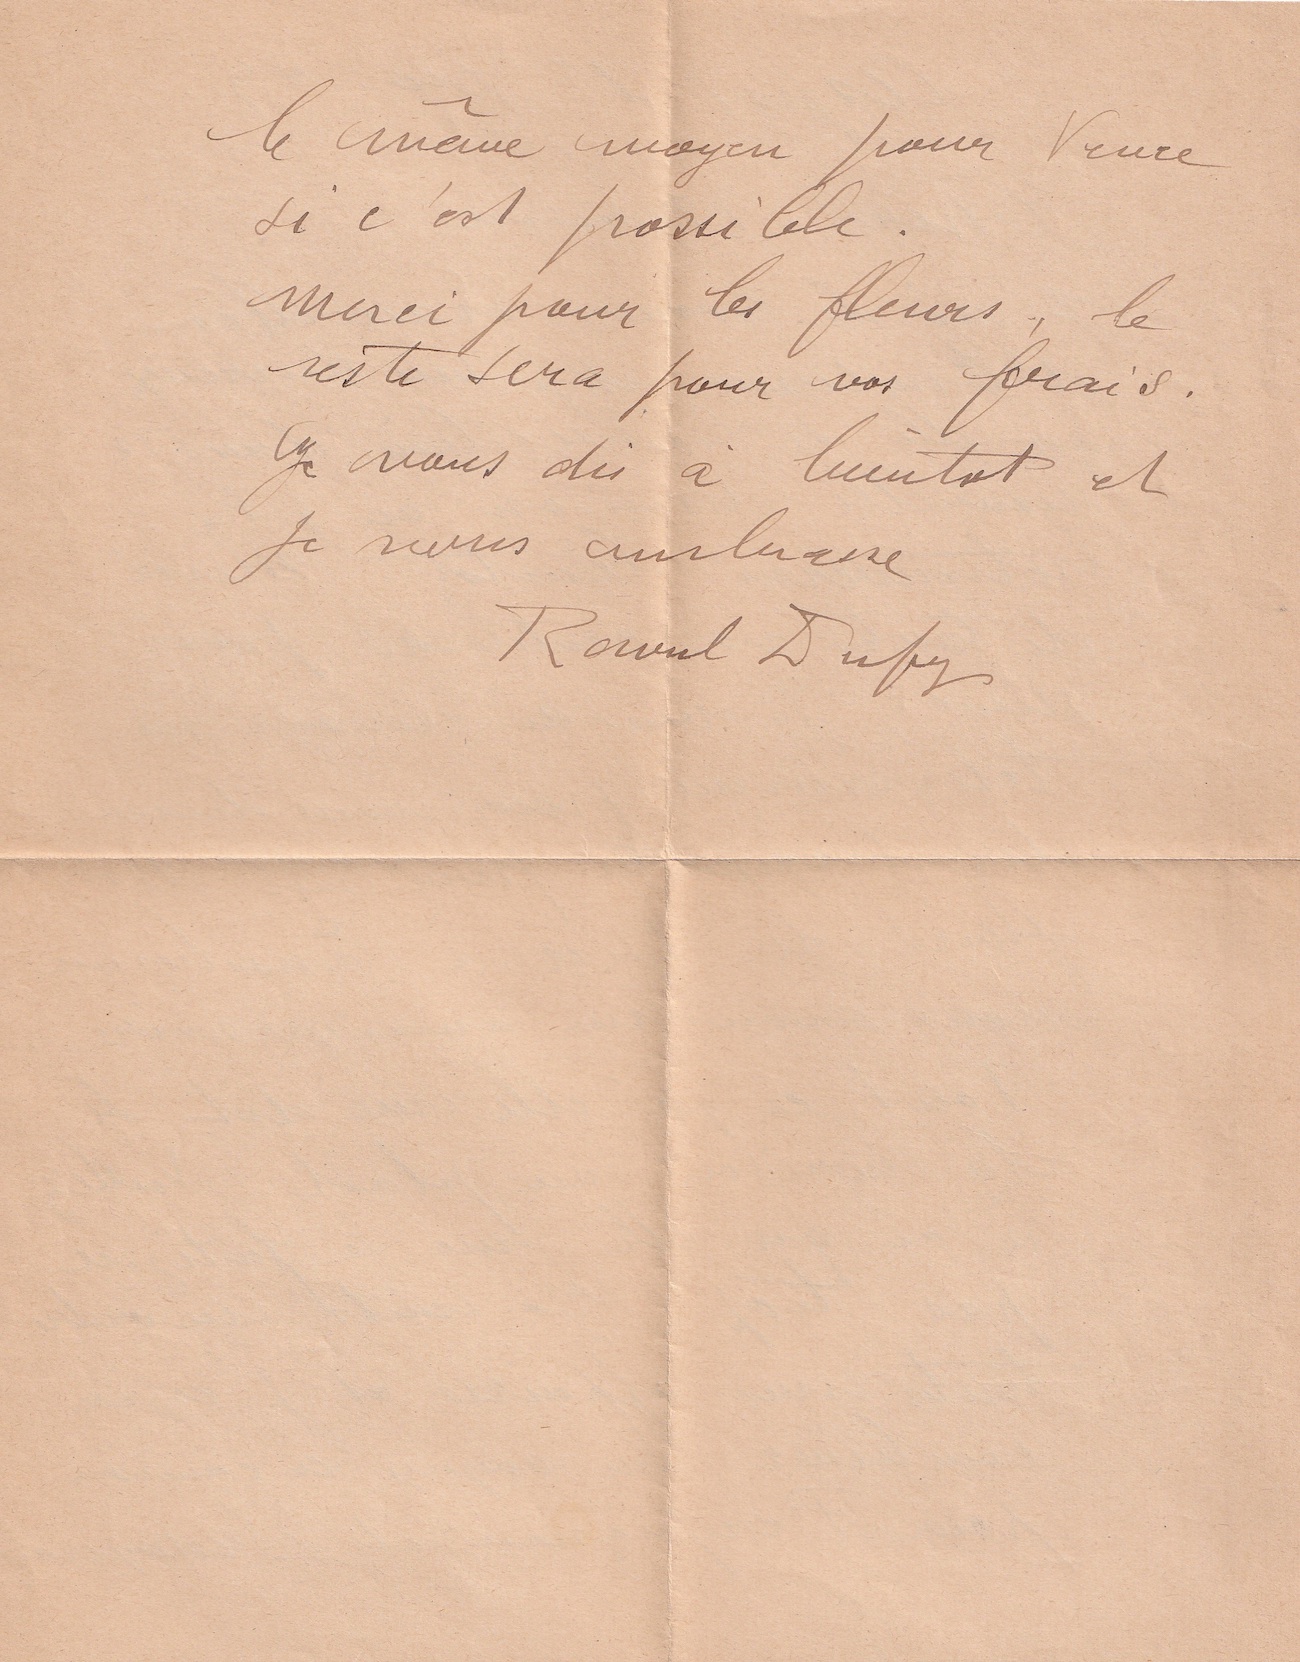 le même moyen pour Vence
si c'est possible.
Merci pour les fleurs, le
reste sera pour vos frais.
Je vous dis à bientôt et
je vous embrasse
Raoul Dufy